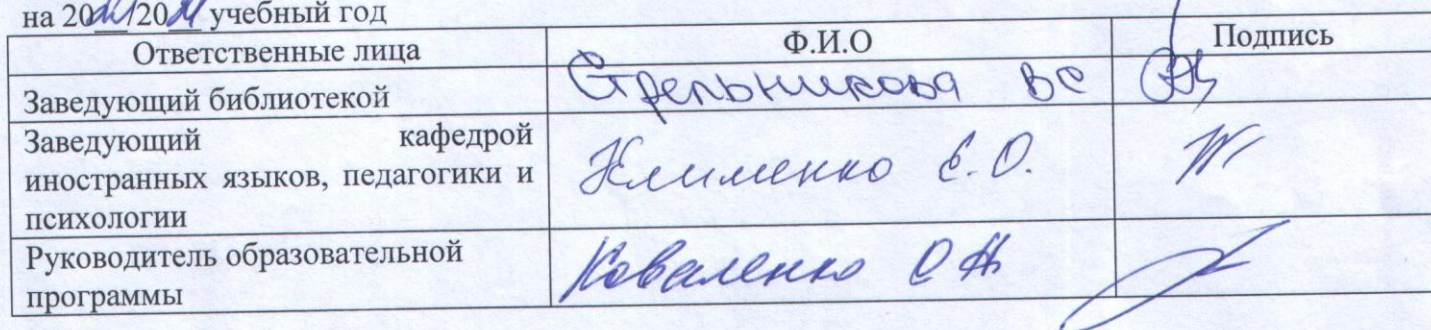 на 20 /20 учебный год
Ответственные лица Ф.И.О Подпись
Заведующий библиотекой Стрельникова ВС
Заведующий кафедрой
иностранных языков, педагогики и Клименко Е.О.
психологии
Руководитель образовательной Коваленко О
программы